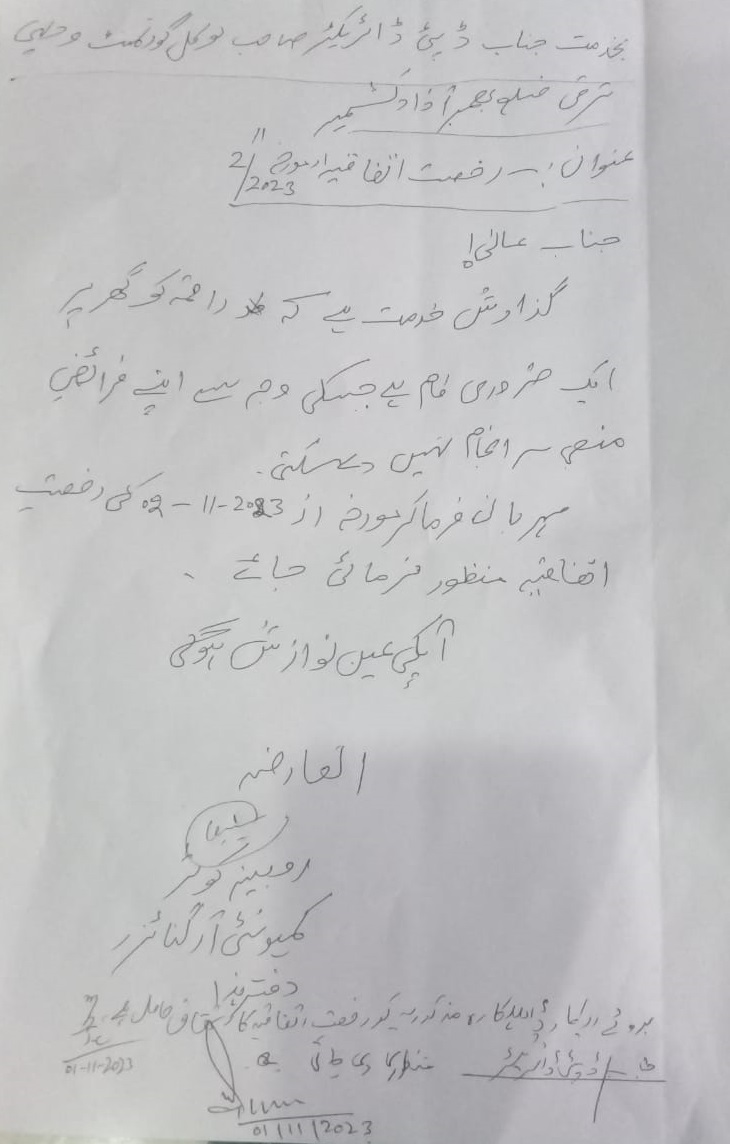 بخدمت جناب ڈپٹی ڈائریکٹر صاحب لوکل گورنمنٹ و دیہی
ترقی ضلع بھمبر آزاد کشمیر
عنوان :۔ رخصت اتفاقیہ از مورخہ 2/11/2023
جناب عالی!
گذارش خدمت ہے کہ راقمہ کو گھر پر
ایک ضروری کام ہے جسکی وجہ سے اپنے فرائض
منصبی سر انجام نہیں دے سکتی۔
مہربانی فرما کر مورخہ از 02-11-2023 کی رخصت
اتفاقیہ منظور فرمائی جائے۔
آپکی عین نوازش ہوگی
العارضہ
روبینہ کوثر
کمیونٹی آرگنائزر
دفتر ہذا
بروئے ریکارڈ اہلکارہ مذکوریہ کو رخصت اتفاقیہ کا استحقاق حاصل ہے۔
01-11-2023
جناب ڈپٹی ڈائریکٹر
منظور کی جاتی ہے
01/11/2023